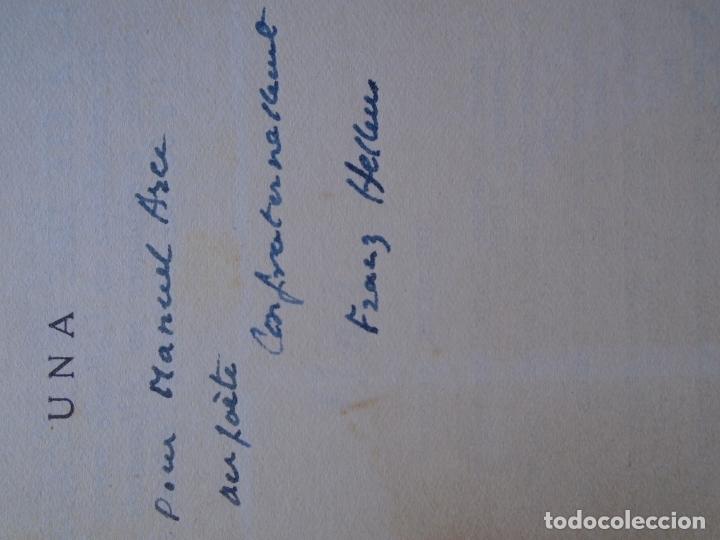 UNA
Pour Manuel Arce
au poète
Confraternellement
Franz Hellens
todocoleccion.net